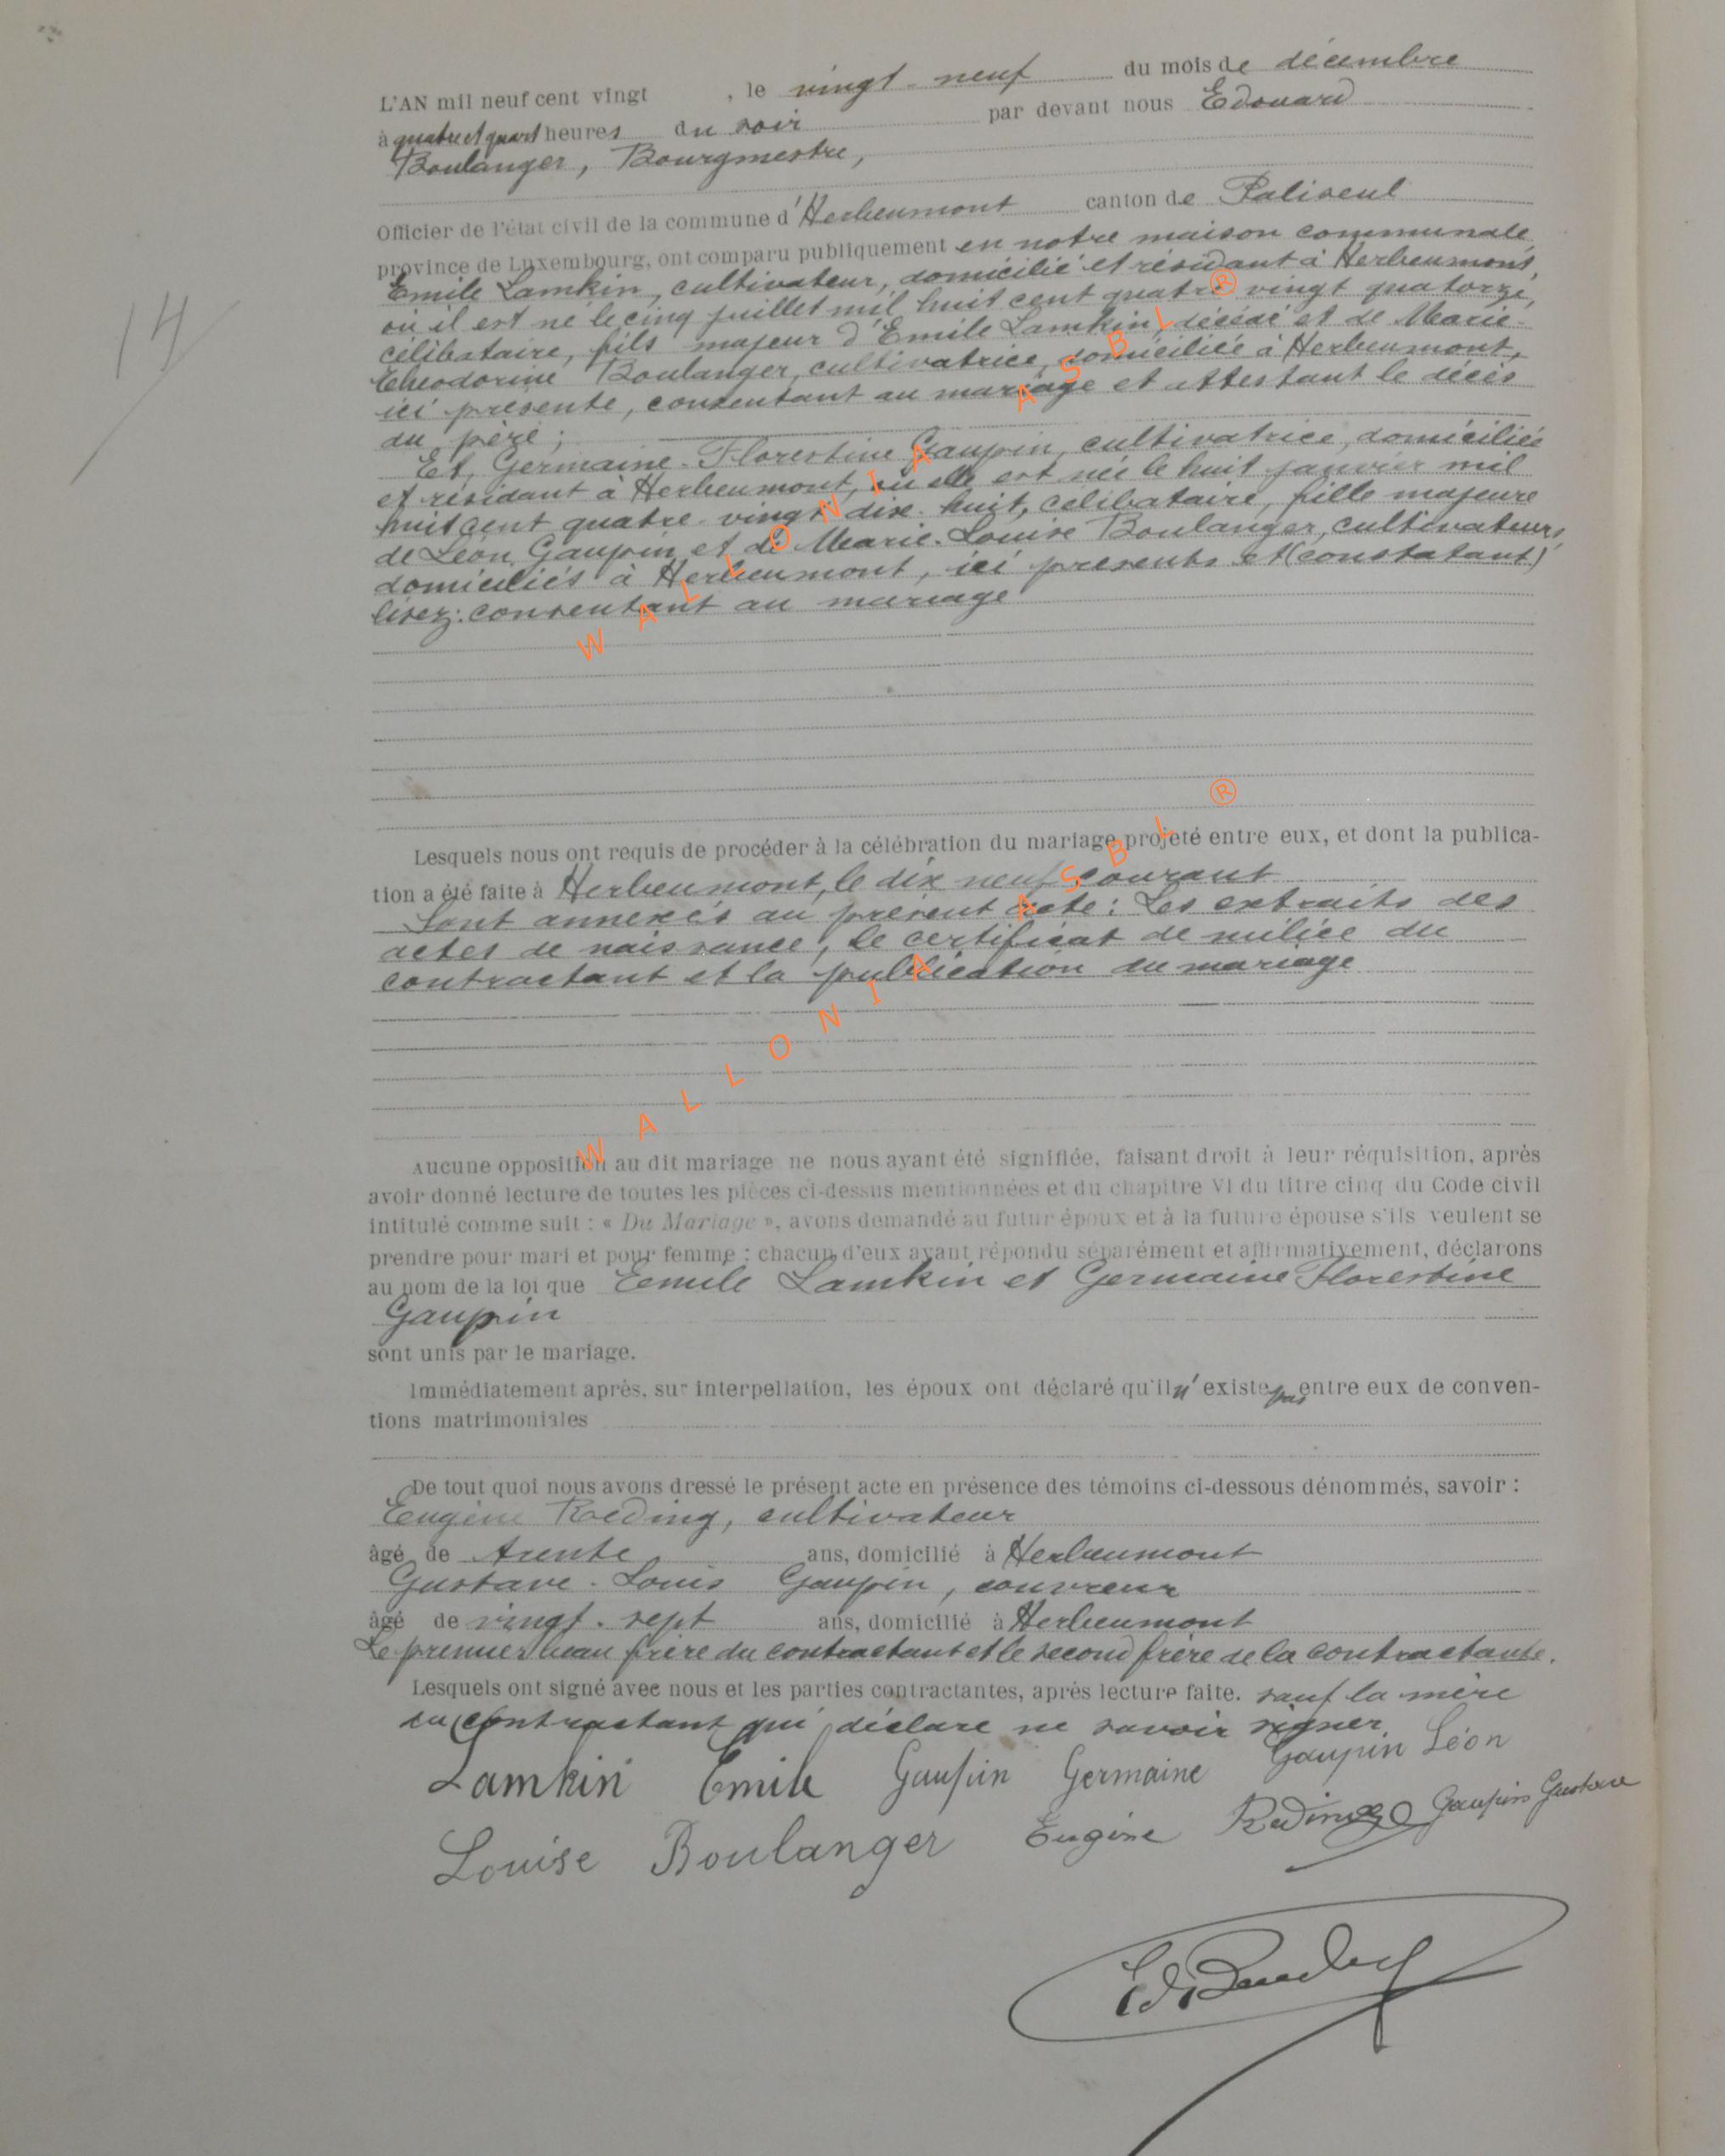 L'AN mil neuf cent vingt , le vingt-neuf du mois de décembre
à quatre et quart heures du soir par devant nous Edouard
Boulanger, Bourgmestre,
Officier de l'état civil de la commune d'Herbeumont canton de Paliseul
province de Luxembourg, ont comparu publiquement en notre maison communale
Emile Lamkin, cultivateur, domicilié et résidant à Herbeumont,
où il est né le cinq juillet mil huit cent quatre vingt quatorze,
célibataire, fils majeur d'Emile Lamkin, décédé et de Marie-
Théodorine Boulanger, cultivatrice, domiciliée à Herbeumont,
ici présente, consentant au mariage et attestant le décès
du père;
Et, Germaine-Florestine Gaupin, cultivatrice, domiciliée
et résidant à Herbeumont, où elle est née le huit janvier mil
huit cent quatre-vingt dix-huit, célibataire, fille majeure
de Léon Gaupin et de Marie-Louise Boulanger, cultivateurs,
domiciliés à Herbeumont, ici présents et (constatant)
lisez: consentant au mariage
14
WALLONIA ASBL ®
Lesquels nous ont requis de procéder à la célébration du mariage projeté entre eux, et dont la publica-
tion a été faite à Herbeumont, le dix neuf courant
Sont annexés au présent acte: Les extraits des
actes de naissance, le certificat de milice du
contractant et la publication du mariage
WALLONIA ASBL ®
Aucune opposition au dit mariage ne nous ayant été signifiée, faisant droit à leur réquisition, après
avoir donné lecture de toutes les pièces ci-dessus mentionnées et du chapitre VI du titre cinq du Code civil
intitulé comme suit : « Du Mariage », avons demandé au futur époux et à la future épouse s'ils veulent se
prendre pour mari et pour femme : chacun d'eux ayant répondu séparément et affirmativement, déclarons
au nom de la loi que Emile Lamkin et Germaine Florestine
Gaupin
sont unis par le mariage.
Immédiatement après, sur interpellation, les époux ont déclaré qu'il n'existe pas entre eux de conven-
tions matrimoniales
De tout quoi nous avons dressé le présent acte en présence des témoins ci-dessous dénommés, savoir :
Eugène Reding, cultivateur
âgé de trente ans, domicilié à Herbeumont
Gustave-Louis Gaupin, couvreur
âgé de vingt-sept ans, domicilié à Herbeumont
Le premier beau frère du contractant et le second frère de la contractante.
Lesquels ont signé avec nous et les parties contractantes, après lecture faite. sauf la mère
du contractant qui déclare ne savoir signer.
Lamkin Emile Gaupin Germaine Gaupin Léon
Louise Boulanger Eugène Reding Gaupin Gustave